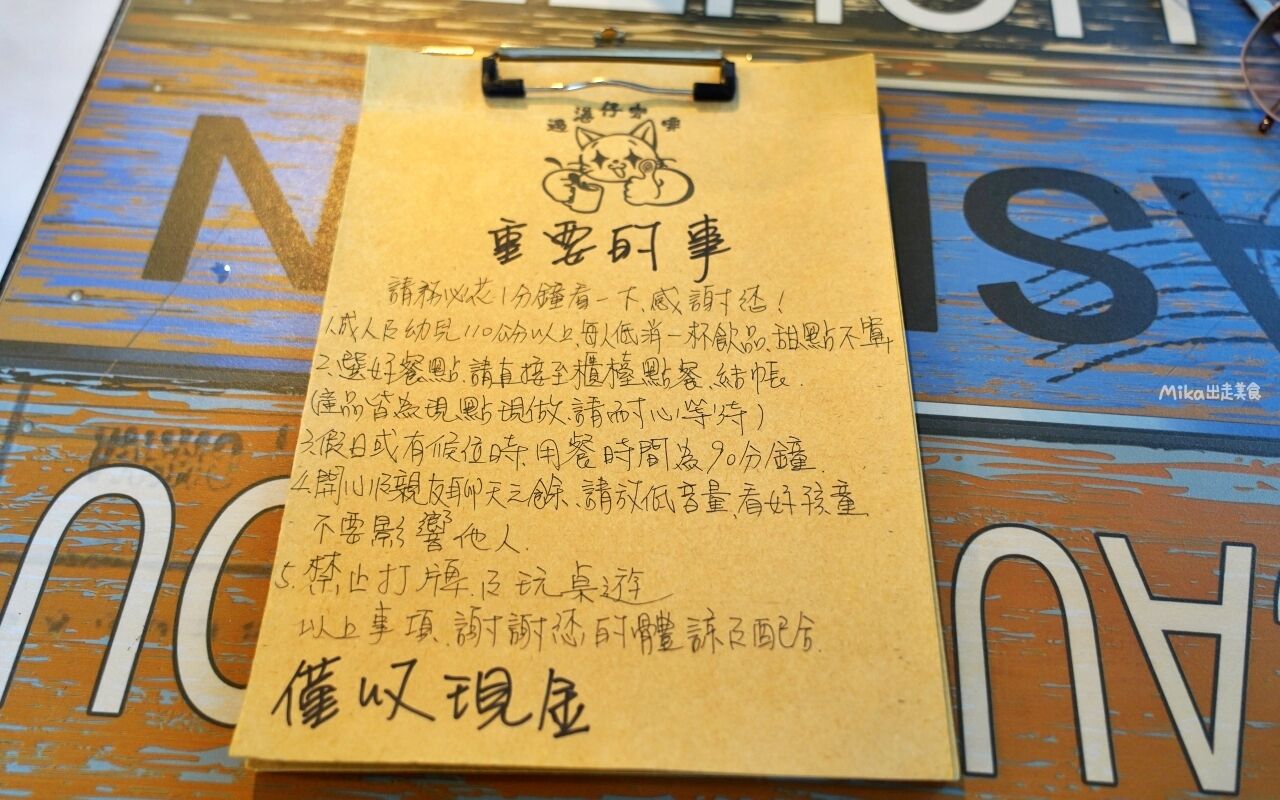 邊溫仔咖啡
重要的事
請務必花1分鐘看一下,感謝您!
1.成人及幼兒110公分以上,每人低消一杯飲品,甜點不算
2.選好餐點,請直接至櫃檯點餐、結帳.
(產品皆為現點現做,請耐心等待)
3.假日或有候位時,用餐時間為90分鐘.
4.開心與親友聊天之餘,請放低音量,看好孩童
不要影響他人.
5.禁止打牌及玩桌遊
以上事項,謝謝您的體諒及配合.
僅收現金
Mika出走美食
N
SIV